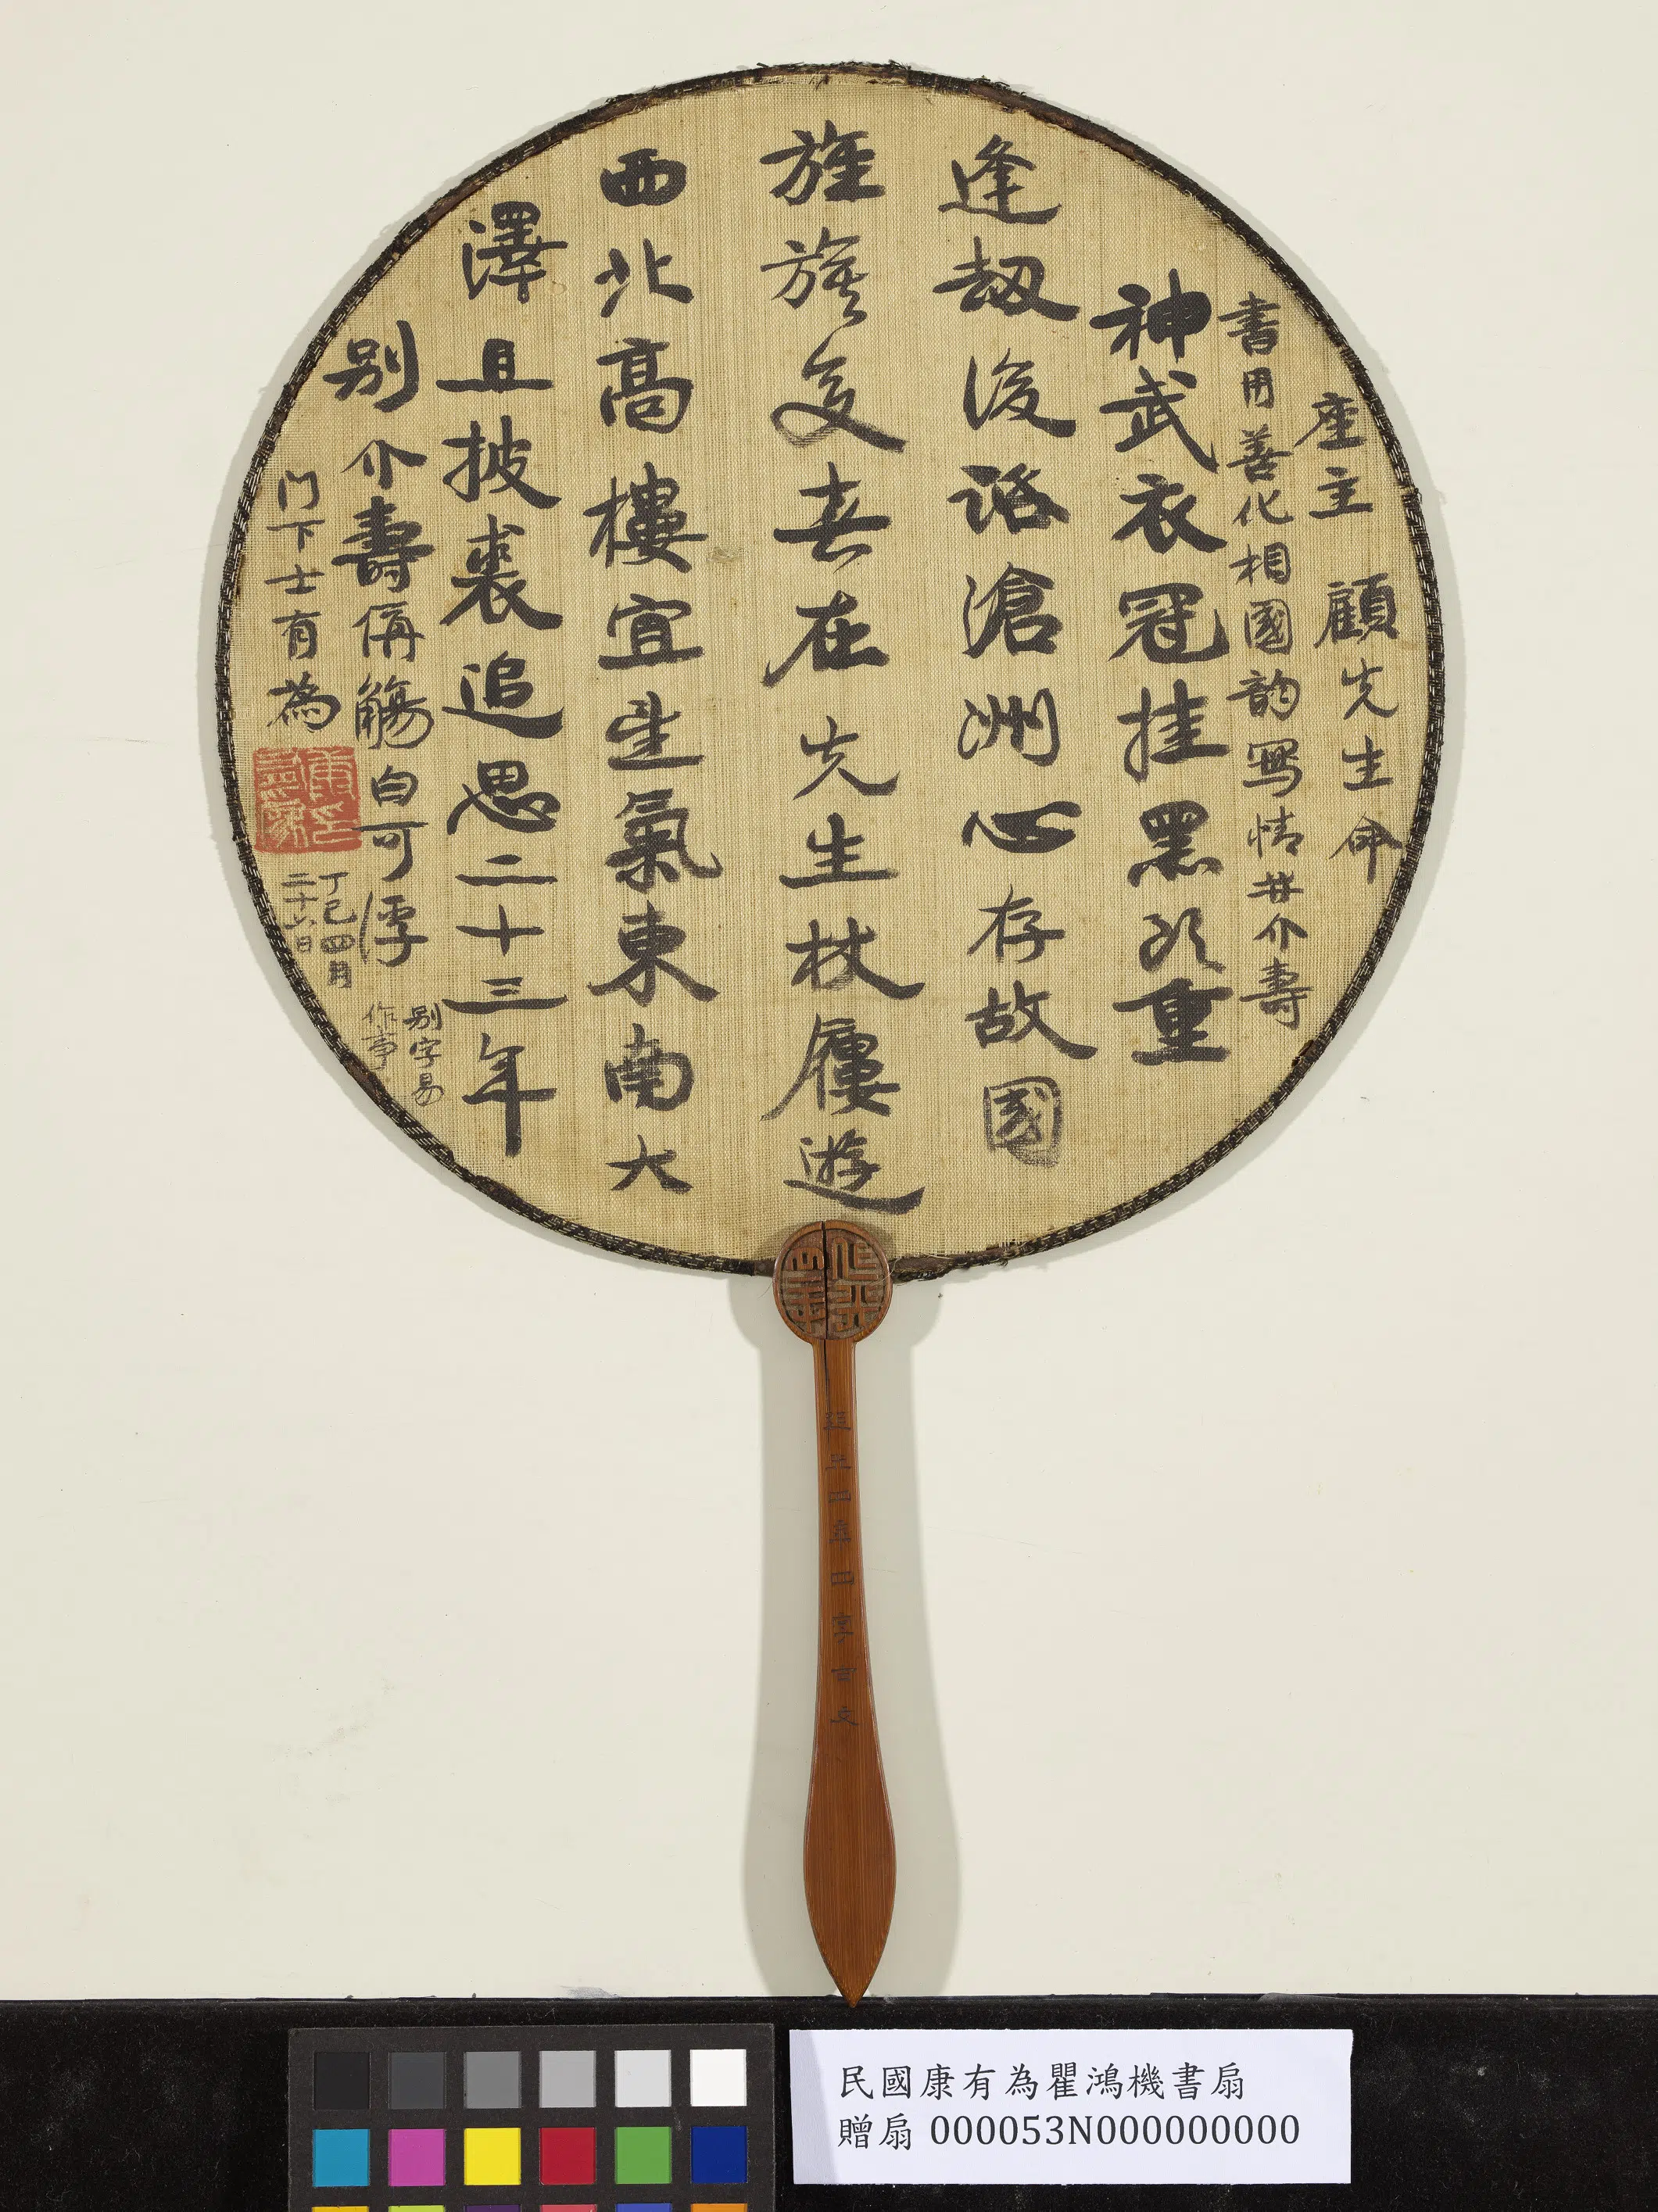 座主 顧先生命
書用善化相國韵寫情其介壽
神武衣冠挂黑頭重
逢劫後話滄洲心存故國
旌旗变春在先生杖履遊
西北高樓宜生氣東南大
澤且披裘追思二十三年
别介壽偁觴自可浮
别字易
作事
门下士有為
丁巳四月
二十六日
民國康有為瞿鴻機書扇
贈扇 000053N000000000